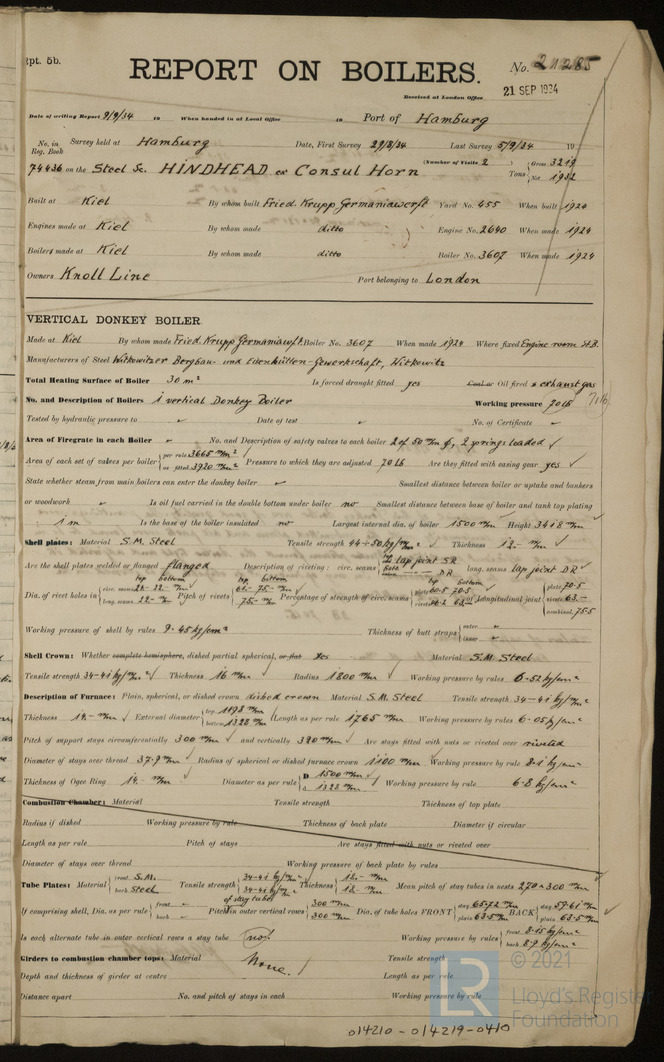 Rpt. 5b.
REPORT ON BOILERS.
No. 21285
Received at London Office
21 SEP 1934
Date of writing Report 9/9/34 19 When handed in at Local Office 19 Port of Hamburg
No. in Reg. Book Survey held at Hamburg Date, First Survey 29/8/34 Last Survey 5/9/34 19
74436 on the Steel Sc. HINDHEAD ex Consul Horn (Number of Visits 2 ) Tons { Gross 3219 Net 1932
Built at Kiel By whom built Fried. Krupp Germaniawerft Yard No. 455 When built 1924
Engines made at Kiel By whom made ditto Engine No. 2640 When made 1924
Boilers made at Kiel By whom made ditto Boiler No. 3607 When made 1924
Owners Knoll Line Port belonging to London
VERTICAL DONKEY BOILER
Made at Kiel By whom made Fried. Krupp Germaniawft. Boiler No. 3607 When made 1924 Where fixed Engine room
Manufacturers of Steel Witkowitzer Bergbau- und Eisenhütten-Gewerkschaft, Witkowitz
Total Heating Surface of Boiler 30 m² Is forced draught fitted yes Coal or Oil fired & exhaust gas
No. and Description of Boilers 1 vertical Donkey Boiler Working pressure 70 lb
Tested by hydraulic pressure to Date of test No. of Certificate
Area of Firegrate in each Boiler No. and Description of safety valves to each boiler 2 of 50 m/m ø, 2 springs loaded
Area of each set of valves per boiler { per rule 3665 m/m² as fitted 3920 m/m² Pressure to which they are adjusted 70 lb Are they fitted with easing gear yes
State whether steam from main boilers can enter the donkey boiler Smallest distance between boiler or uptake and bunkers
or woodwork Is oil fuel carried in the double bottom under boiler no Smallest distance between base of boiler and tank top plating
1 m Is the base of the boiler insulated no Largest internal dia. of boiler 1500 m/m Height 3418 m/m
Shell plates: Material S.M. Steel Tensile strength 44-50 kg/m/m² Thickness 12.- m/m
Are the shell plates welded or flanged flanged Description of riveting: circ. seams { lap joint SR DR long. seams lap joint DR
Dia. of rivet holes in { circ. seams 22-22 m/m long. seams 22.- m/m Pitch of rivets { top bottom 75.- m/m 75.- m/m Percentage of strength of circ. seams { top bottom plate 60.5 70.5 rivets of Longitudinal joint { plate 70.5 rivets 63.- combined 75.5
Working pressure of shell by rules 9.45 kg/cm² Thickness of butt straps { outer inner
Shell Crown: Whether complete hemisphere, dished partial spherical, or flat Yes Material S.M. Steel
Tensile strength 34-41 kg/m/m² Thickness 16 m/m Radius 1800 m/m Working pressure by rules 6.52 kg/cm²
Description of Furnace: Plain, spherical, or dished crown dished crown Material S.M. Steel Tensile strength 34-41 kg/m/m²
Thickness 14.- m/m External diameter { top 1193 m/m bottom 1328 m/m Length as per rule 1765 m/m Working pressure by rules 6.05 kg/cm²
Pitch of support stays circumferentially 300 m/m and vertically 320 m/m Are stays fitted with nuts or riveted over riveted
Diameter of stays over thread 37.9 m/m Radius of spherical or dished furnace crown 1100 m/m Working pressure by rule 8.1 kg/cm²
Thickness of Ogee Ring 14.- m/m Diameter as per rule { D 1500 m/m d 1328 m/m Working pressure by rule 6.8 kg/cm²
Combustion Chamber: Material Tensile strength Thickness of top plate
Radius if dished Working pressure by rule Thickness of back plate Diameter if circular
Length as per rule Pitch of stays Are stays fitted with nuts or riveted over
Diameter of stays over thread Working pressure of back plate by rules
Tube Plates: Material { front S.M. back Steel Tensile strength { 34-41 kg/m/m² 34-41 kg/m/m² Thickness { 12.- m/m 12.- m/m Mean pitch of stay tubes in nests 270 x 300 m/m
of stay tubes
If comprising shell, Dia. as per rule { front back Pitch in outer vertical rows { 300 m/m 300 m/m Dia. of tube holes FRONT { stay plain 63.5 m/m BACK { stay plain 63.5 m/m
Is each alternate tube in outer vertical rows a stay tube no! Working pressure by rules { front 8.15 kg/cm² back 8.9 kg/cm²
Girders to combustion chamber tops: Material None. Tensile strength
Depth and thickness of girder at centre Length as per rule
Distance apart No. and pitch of stays in each Working pressure by rule
LR
© 2021
Lloyd's Register
Foundation
014210-014219-0410